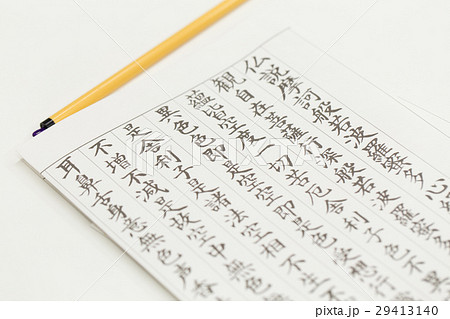 仏説摩訶般若波羅蜜多心
観自在菩薩行深般若波羅蜜多
蘊皆空度一切苦厄舎利子色不異
異色色即是空空即是色受想行
是舎利子是諸法空相不生不
不増不減是故空中無色
耳鼻舌身意無色声香
pixta.jp - 29413140